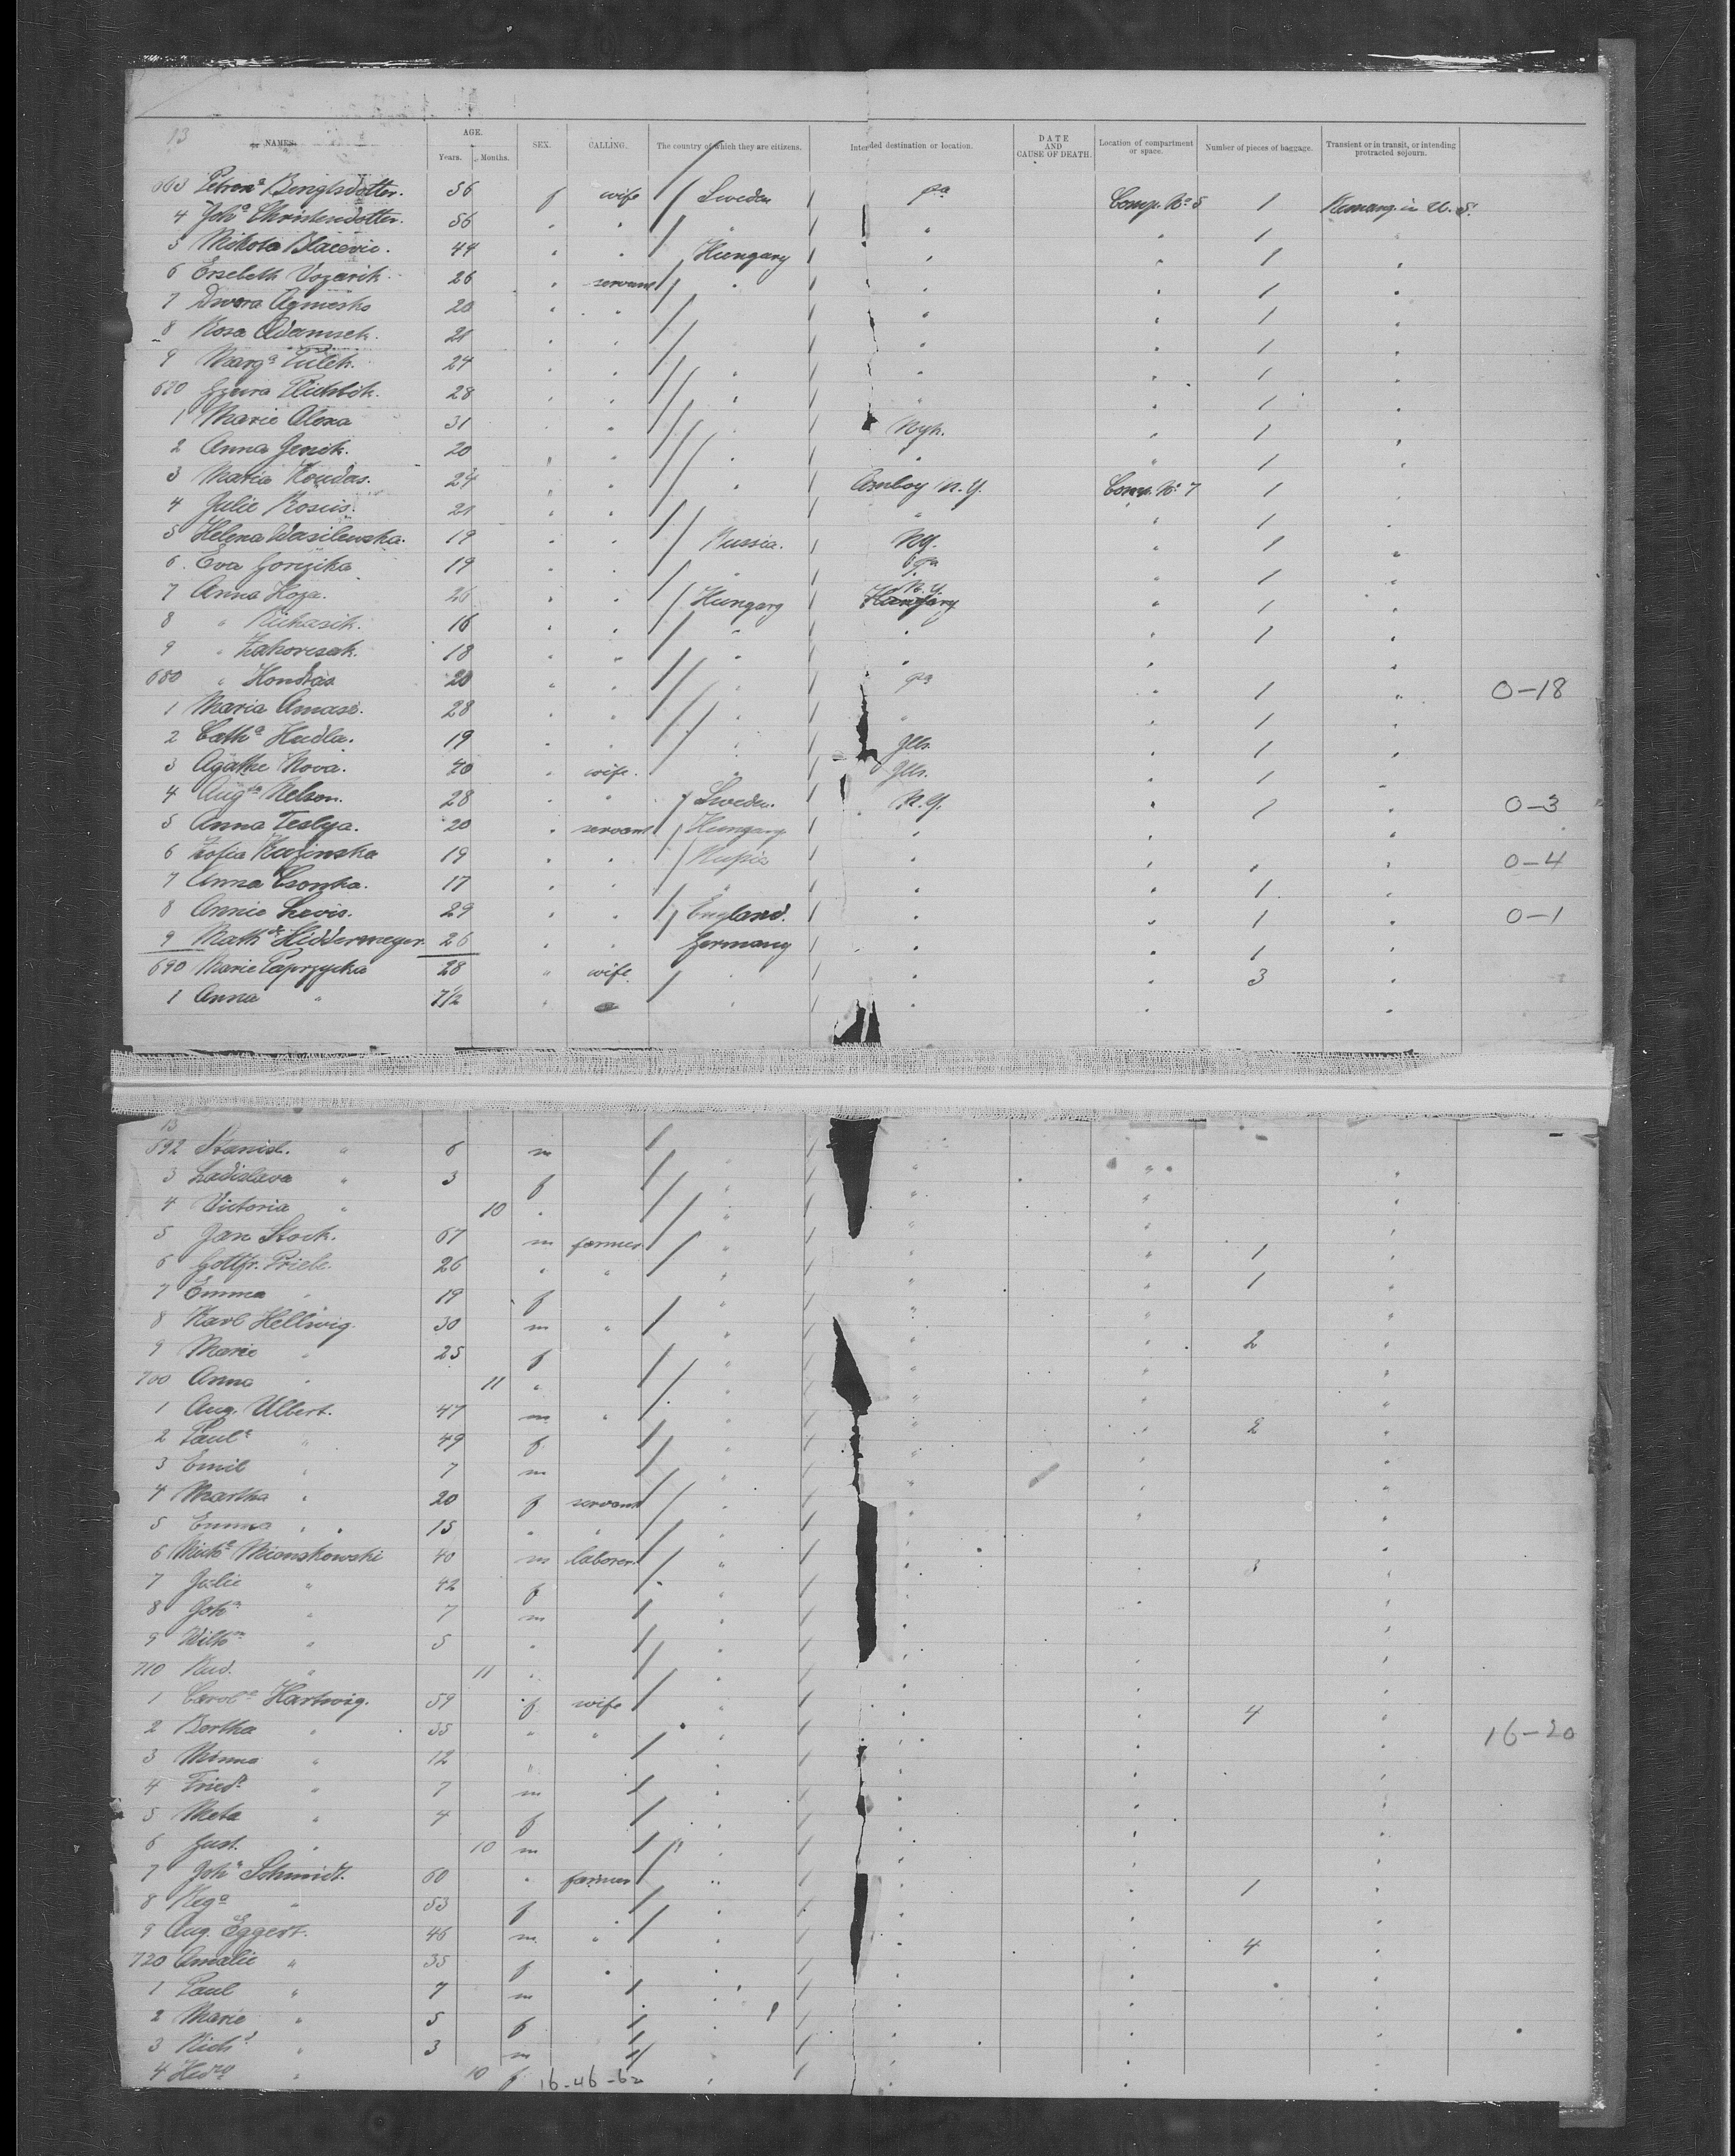 13
NAMES. AGE. Years. Months. SEX. CALLING. The country of which they are citizens. Intended destination or location. DATE AND CAUSE OF DEATH. Location of compartment or space. Number of pieces of baggage. Transient or in transit, or intending protracted sojourn.
663 Petrona Bengtsdotter. 56 f wife Sweden Pa Comp. No 5 1 in U.S.
4 Joha Christensdotter. 56 " " " " " 1 "
5 Nikola Blacevic. 44 " " Hungary " " 1 "
6 Ersebeth Vozarik. 26 " servant " " " 1 "
7 Dwora Agniesko 20 " " " " 1 "
8 Rosa Adamsek. 21 " " " " 1 "
9 Marga Tulek. 24 " " " " " 1 "
670 28 " " " " " 1 "
1 Marie Alexa 31 " " " Nyk. " 1 "
2 Anna Genik. 20 " " " " " 1 "
3 Maria Koudas. 24 " " " Amboy N.Y. Comp. No 7 1 "
4 Julie Rosus. 21 " " " " 1 "
5 Helena Wasilewska. 19 " " Russia. NY. " 1 "
6 Eva Goryika 19 " " " Pa " 1 "
7 Anna Koza. 26 " " Hungary N.Y. Hungary " 1 "
8 " Kuhasik. 16 " " " " " 1 "
9 " Zahorcsak. 18 " " " " " "
680 " Hondras 20 " " " Pa " 1 " 0-18
1 Maria Amasi. 28 " " " " " 1 "
2 Catha Hudla. 19 " " " Ills. " 1 "
3 Agathe Nova. 40 " wife. " Ills. " 1 "
4 Augsta Nelson. 28 " " Sweden. N.Y. " 1 " 0-3
5 Anna Teslya. 20 " servant Hungary " " "
6 Zofia Kuzinska 19 " " Russia " " " " 0-4
7 Anna Csonka. 17 " " " " 1 "
8 Annie Lewis. 29 " " England. " " 1 " 0-1
9 Mathde Hiddermeyer. 26 " " Germany " " 1 "
690 Marie Paprzycka 28 " wife " " 3 "
1 Anna " 7 1/2 " " " "
13
692 Stanisl. " 6 m " " "
3 Ladislava " 3 f " " " "
4 Victoria " 10 " " " " "
5 Jan Stock. 67 m farmer " " " 1 "
6 Gottfr. Priebe. 26 " " " " " 1 "
7 Emma " 19 f " " " "
8 Karl Hellwig. 30 m " " " " 2 "
9 Marie " 25 f " " " "
700 Anna " 11 " " " " "
1 Aug. Ulbert. 47 m " " " " 2 "
2 Paule " 49 f " " " "
3 Emil " 7 m " " "
4 Martha " 20 f servant " " "
5 Emma " 15 " " " "
6 Micha Mianskowski 40 m laborer " " 3 "
7 Julie " 42 f " "
8 Joha " 7 m " " "
9 Wilhm " 5 " " " "
710 Rud. " 11 " " "
1 Carola Hartwig. 59 f wife " " " 4 "
2 Bertha " 35 " " " " " 16-20
3 Minna " 12 " " " " "
4 Friedr " 7 m " " " "
5 Meta " 4 f " " "
6 Gust. " 10 m " " "
7 John Schmidt. 60 " farmer " " " 1 "
8 Rega " 53 f " " " "
9 Aug. Eggert. 46 m " " " " 4 "
720 Amalie " 35 f " " "
1 Paul " 7 m " " " "
2 Marie " 5 f " " " "
3 Richd " 3 m " " " "
4 Hedwg " 10 f 16-46-62 " " " "